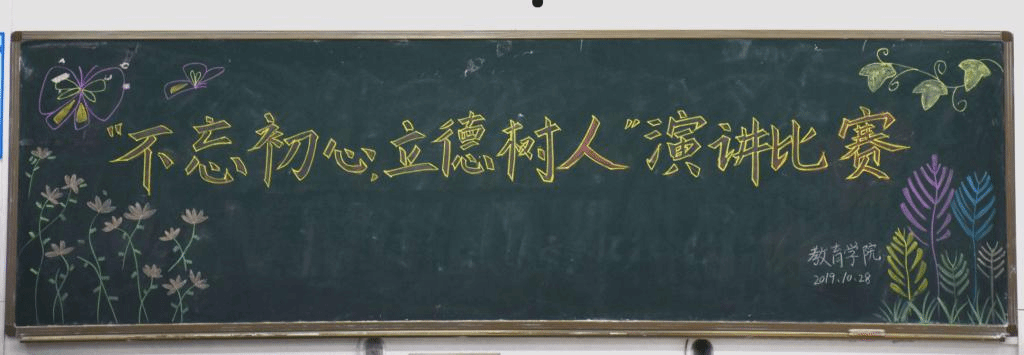 “不忘初心、立德树人”演讲比赛
教育学院
2019.10.28